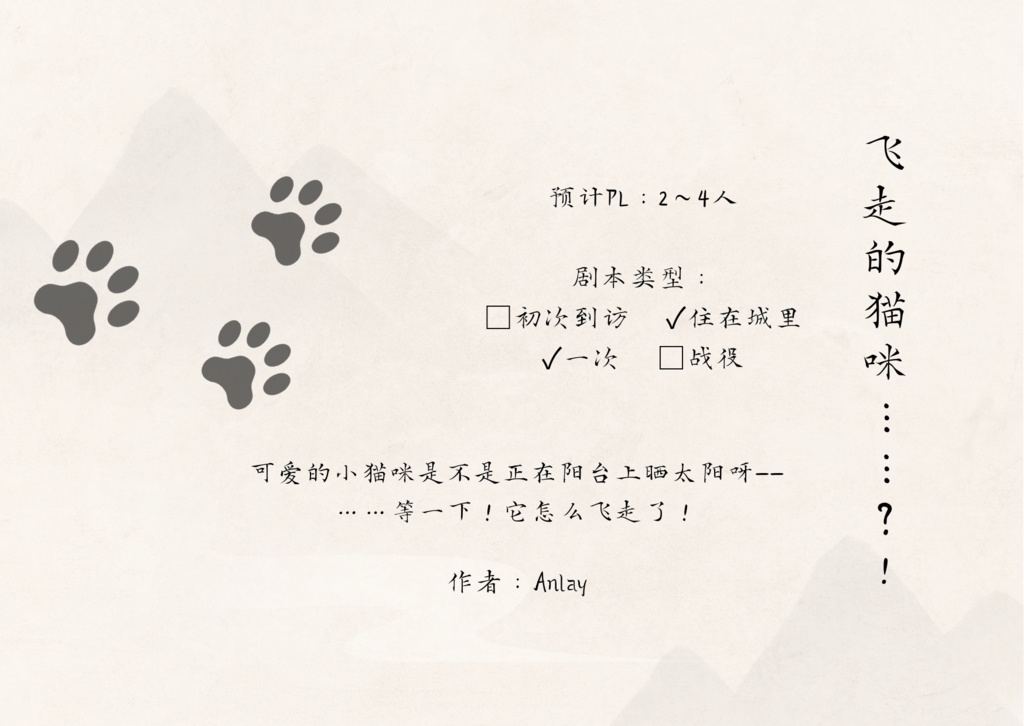 飞走的猫咪……？！
预计PL：2～4人
剧本类型：
□初次到访 ✓住在城里
✓一次 □战役
可爱的小猫咪是不是正在阳台上晒太阳呀--
……等一下！它怎么飞走了！
作者：Anlay